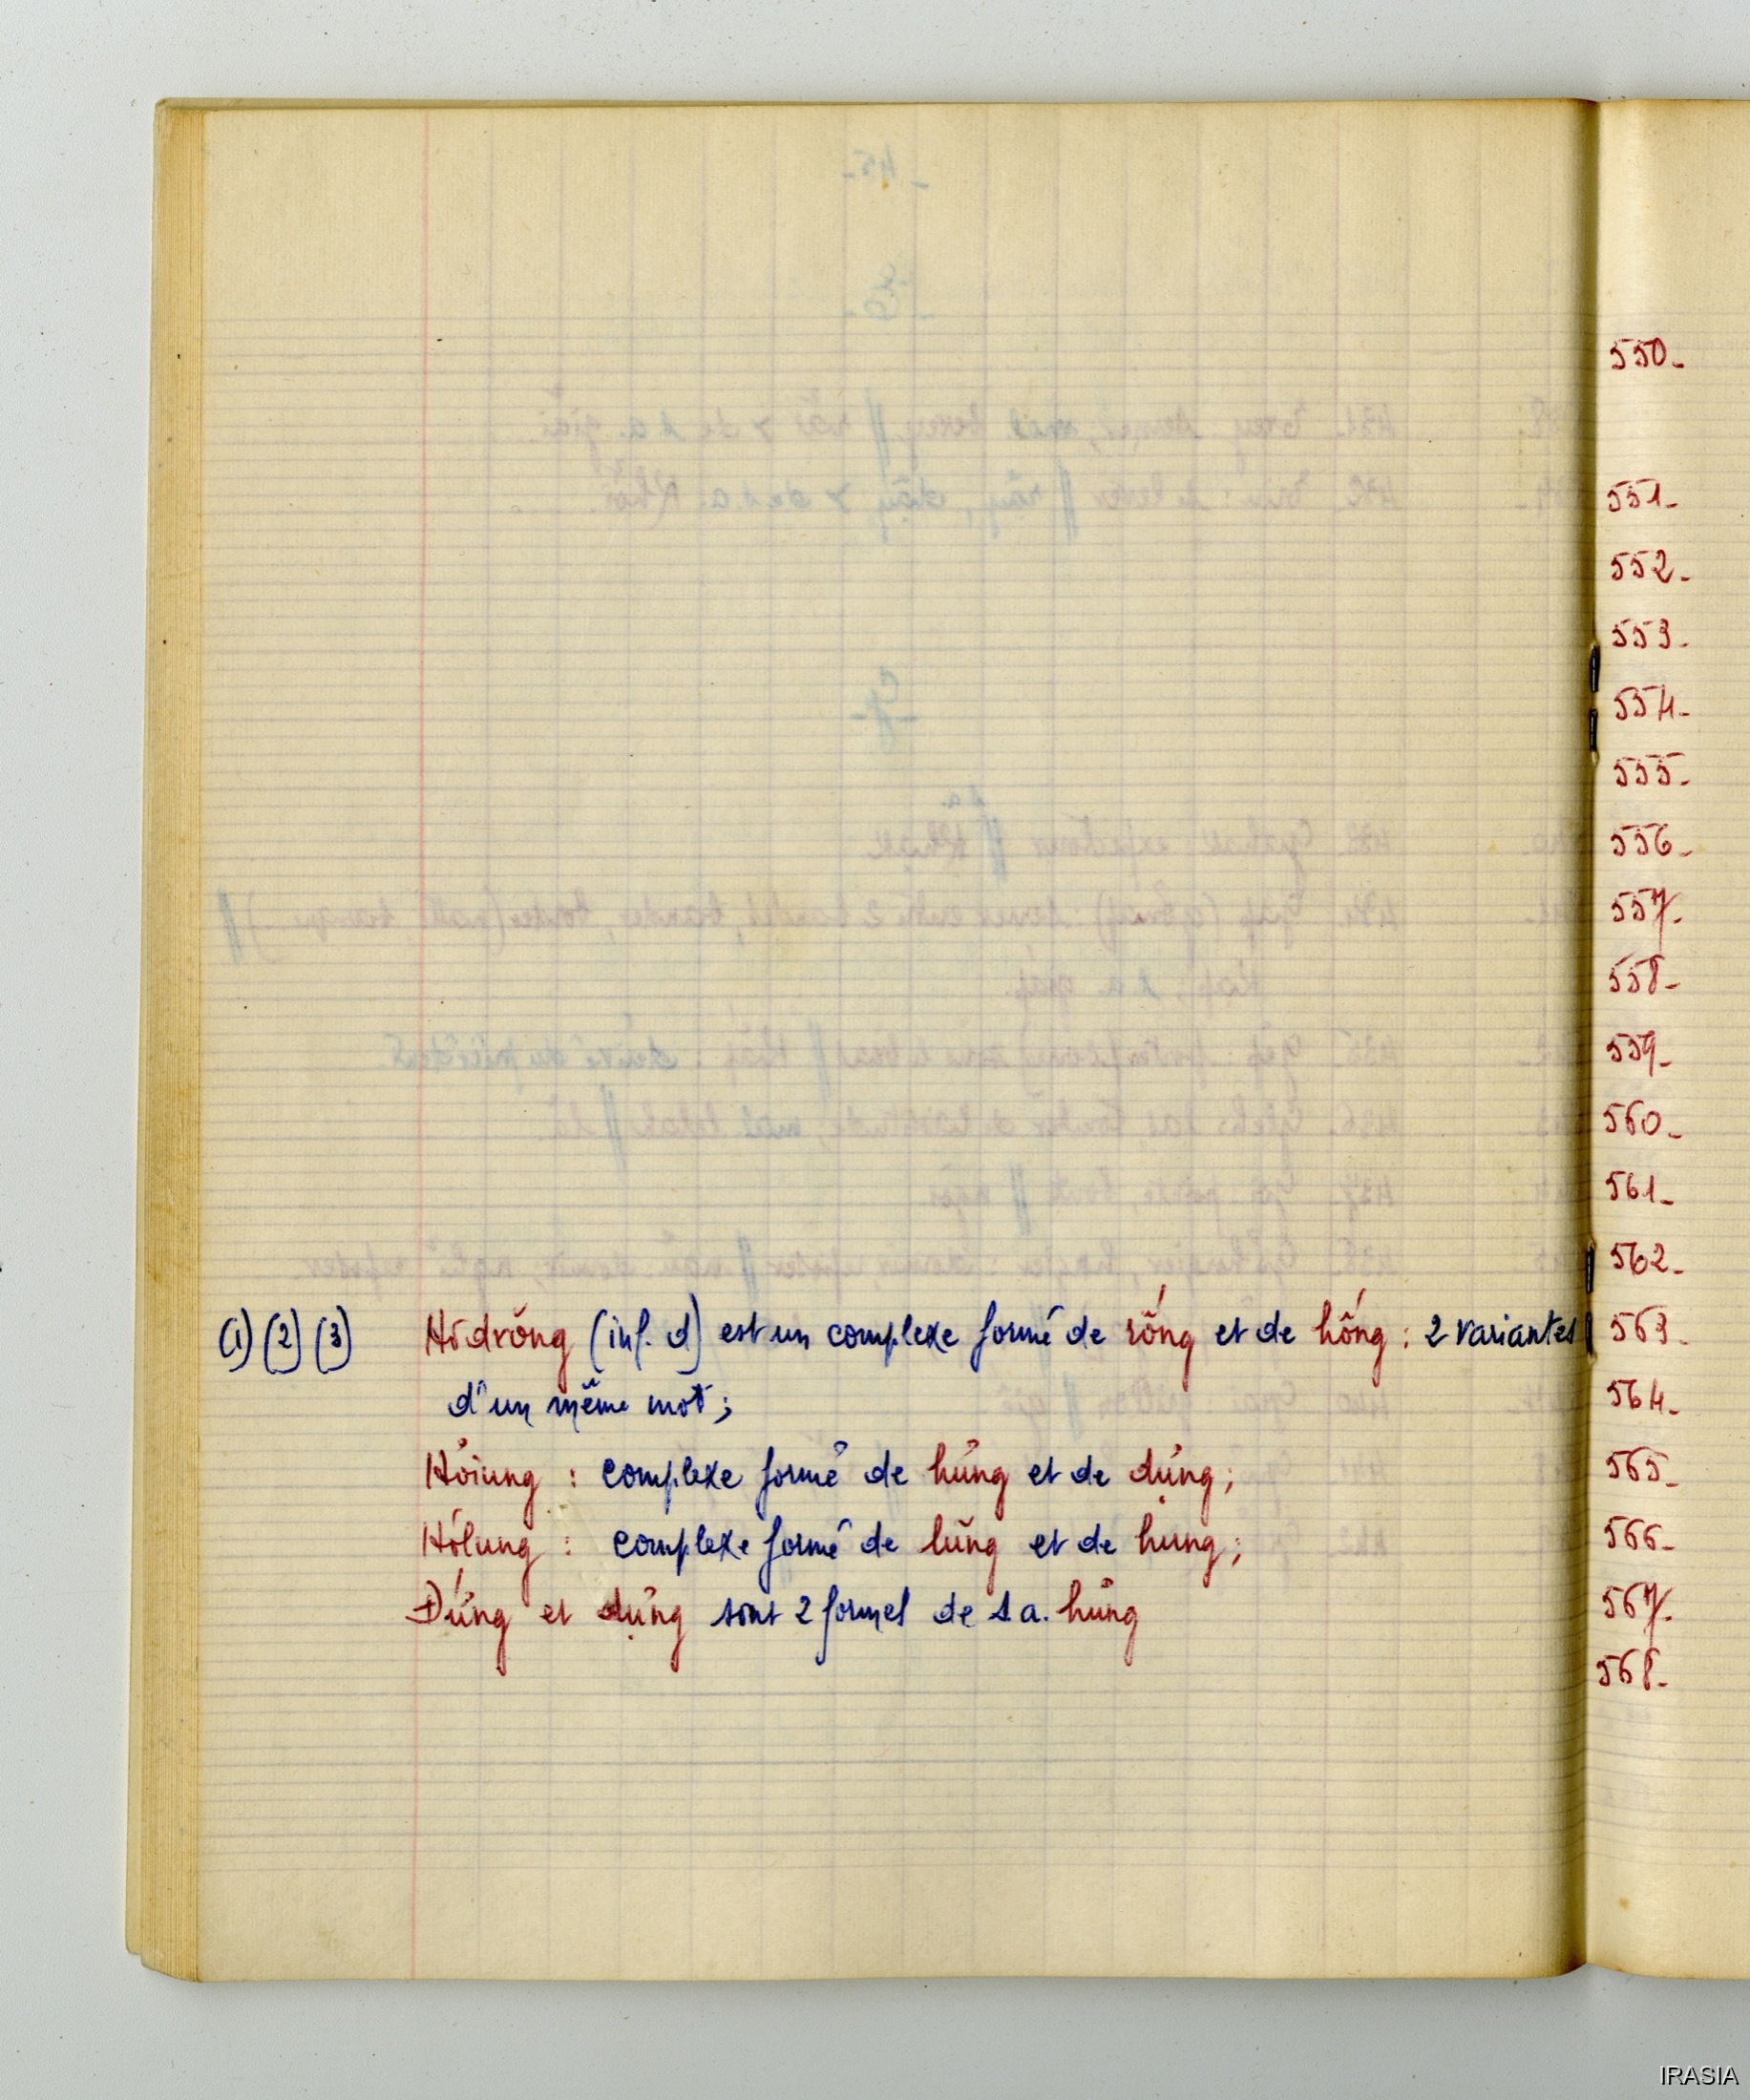 (1) (2) (3) Hơdrŏng (inf. d) est un complexe formé de rống et de hống : 2 variantes
d'un même mot ;
Hơiung : complexe formé de hứng et de dựng ;
Hơlung : complexe formé de lũng et de hưng ;
Đứng et dựng sont 2 formes de s.a. hứng
550-
551-
552-
553-
554-
555-
556-
557-
558-
559-
560-
561-
562-
563-
564-
565-
566-
567-
568-
IRASIA